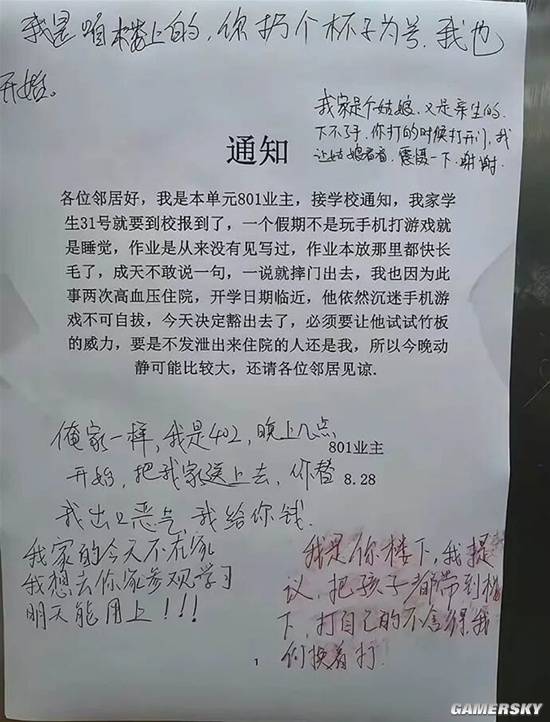 我是咱楼上的，你扔个杯子为号，我也
开始。
我家是个姑娘，又是亲生的，
下不了手，你打的时候打开门，我
让姑娘看看，震慑一下，谢谢.
通知
各位邻居好，我是本单元801业主，接学校通知，我家学
生31号就要到校报到了，一个假期不是玩手机打游戏就
是睡觉，作业是从来没有见写过，作业本放那里都快长
毛了，成天不敢说一句，一说就摔门出去，我也因为此
事两次高血压住院，开学日期临近，他依然沉迷手机游
戏不可自拔，今天决定豁出去了，必须要让他试试竹板
的威力，要是不发泄出来住院的人还是我，所以今晚动
静可能比较大，还请各位邻居见谅.
801业主
8.28
俺家一样，我是402，晚上几点
开始，把我家送上去，你替
我出口恶气，我给你钱.
我家的今天不在家
我想去你家参观学习
明天能用上！！！
我是你楼下，我提
议，把孩子都带到楼
下，打自己的不舍得，我
们换着打.
1
GAMERSKY